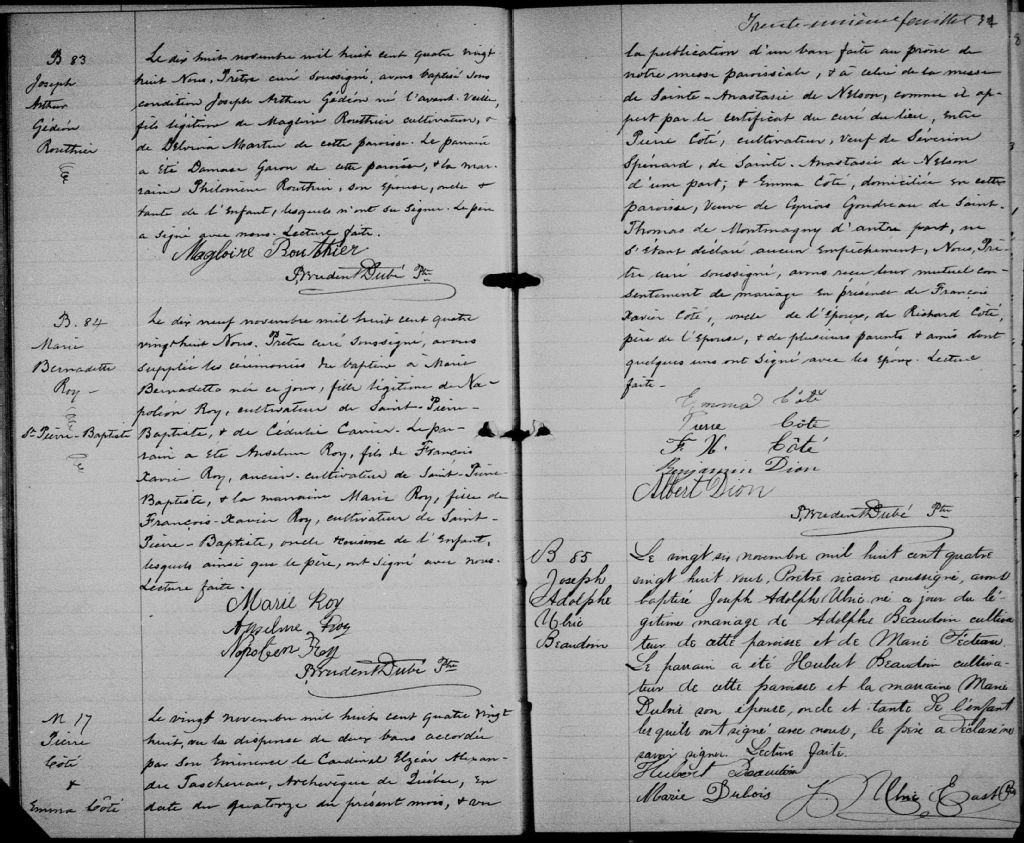 B 83
Joseph
Arthur
Gédéon
Routhier
Le dix huit novembre mil huit cent quatre vingt
huit Nous, Prêtre curé soussigné, avons baptisé sous
condition Joseph Arthur Gédéon né l'avant-veille,
fils légitime de Magloire Routhier cultivateur, &
de Delvina Martin de cette paroisse. Le parrain
a été Damase Garon de cette paroisse, & la mar-
raine Philomène Routhier, son épouse, oncle &
tante de l'Enfant, lesquels n'ont su signer. Le père
a signé avec nous. Lecture faite.
Magloire Routhier
P. Prudent Dubé Ptre
B. 84
Marie
Bernadette
Roy -
St Pierre-Baptiste
Le dix neuf novembre mil huit cent quatre
vingt huit Nous, Prêtre curé soussigné, avons
supplée les cérémonies du baptême à Marie
Bernadette née ce jour, fille légitime de Na-
poléon Roy, cultivateur de Saint-Pierre-
Baptiste, & de Cédulie Carrier. Le par-
rain a été Anselme Roy, fils de François
Xavier Roy, ancien cultivateur de Saint-Pierre
Baptiste, & la marraine Marie Roy, fille de
François-Xavier Roy, cultivateur de Saint-
Pierre-Baptiste, oncle & cousine de l'Enfant,
lesquels ainsi que le père, ont signé avec nous.
Lecture faite.
Marie Roy
Anselme Roy
Napoleon Roy
P. Prudent Dubé Ptre
M 17
Pierre
Côté
&
Emma Côté
Le vingt novembre mil huit cent quatre vingt
huit, vu la dispense de deux bans accordée
par Son Eminence le Cardinal Elzéar Alexan-
dre Taschereau, Archevêque de Québec, en
date du quatorze du présent mois, & vu
Trente-unième feuillet 31
la publication d'un ban faite au prône de
notre messe paroissiale, & à celui de la messe
de Sainte-Anastasie de Nelson, comme il ap-
pert par le certificat du curé du lieu, entre
Pierre Côté, cultivateur, veuf de Séverine
Spénard, de Sainte-Anastasie de Nelson
d'une part; & Emma Côté, domiciliée en cette
paroisse, Veuve de Cyrias Gondreau de Saint-
Thomas de Montmagny d'autre part, ne
s'étant déclaré aucun empêchement, Nous, Prê-
tre curé soussigné, avons reçu leur mutuel con-
sentement de mariage en présence de François
Xavier Côté, oncle de l'Epoux, de Richard Côté,
père de l'Epouse, & de plusieurs parents & amis dont
quelques uns ont signé avec les Epoux. Lecture
faite -
Emma Côté
Pierre Côté
F. X. Côté
Benjamin Dion
Albert Dion
P. Prudent Dubé Ptre
B 85
Joseph
Adolphe
Ulric
Beaudoin
Le vingt six novembre mil huit cent quatre
vingt huit nous, Prêtre vicaire soussigné, avons
baptisé Joseph Adolphe Ulric né ce jour du lé-
gitime mariage de Adolphe Beaudoin cultiva-
teur de cette paroisse et de Marie Fecteau.
Le parrain a été Hubert Beaudoin cultiva-
teur de cette paroisse et la marraine Marie
Dubois son épouse, oncle et tante de l'enfant
lesquels ont signé avec nous, le père a déclaré ne
savoir signer. Lecture faite.
Hubert Beaudoin
Marie Dubois
J. Ulric East Ptre